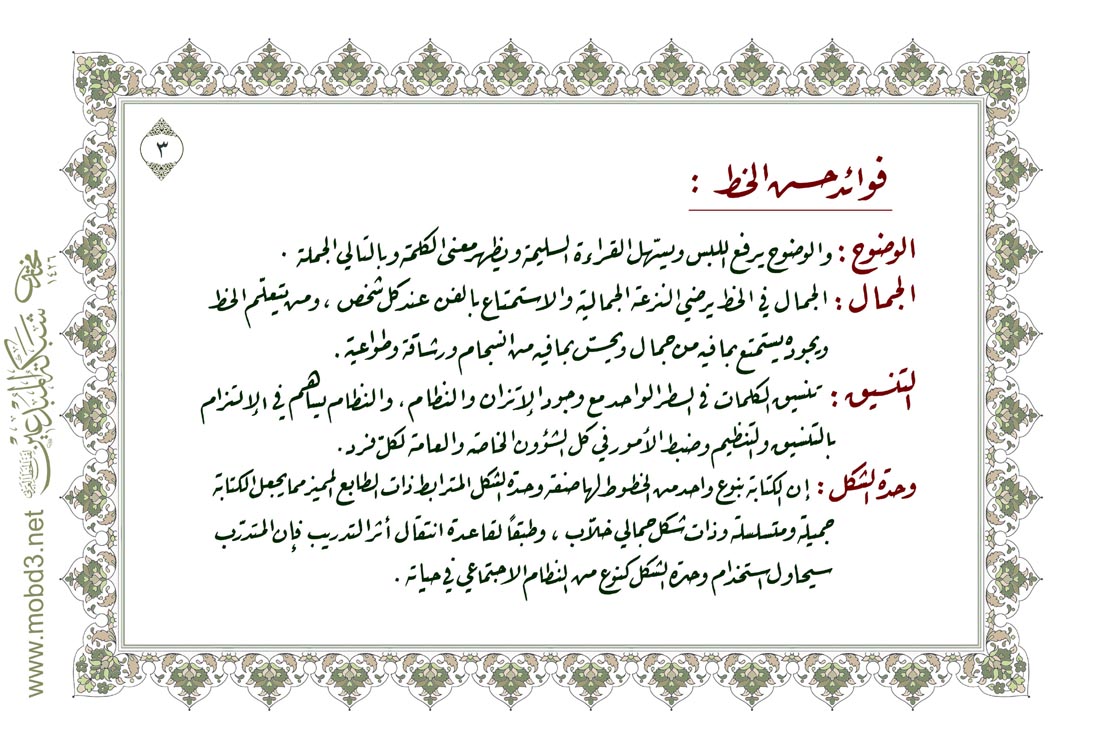 ٣
فوائد حسن الخط :
الوضوح : والوضوح يرفع اللبس ويسهّل القراءة السليمة ويظهر معنى الكلمة وبالتالي الجملة .
الجمال : الجمال في الخط يرضي النزعة الجمالية والاستمتاع بالفن عند كل شخص ، ومن يتعلّم الخط
ويجوده يستمتع بما فيه من جمال ويحسّ بما فيه من انسجام ورشاقة وطواعية .
التنسيق : تنسيق الكلمات في السطر الواحد مع وجود الإتزان والنظام ، والنظام يساهم في الإلتزام
بالتنسيق والتنظيم وضبط الأمور في كل الشؤون الخاصة والعامة لكل فرد .
وحدة الشكل : إن الكتابة بنوع واحد من الخطوط لها صفة وحدة الشكل المترابط ذات الطابع المميز مما يجعل الكتابة
جميلة ومتسلسلة وذات شكل جمالي خلّاب ، وطبقاً لقاعدة انتقال أثر التدريب فإن المتدرب
سيحاول استخدام وحدة الشكل كنوع من النظام الاجتماعي في حياته .
شبكة المبدعين
www.mobd3.net